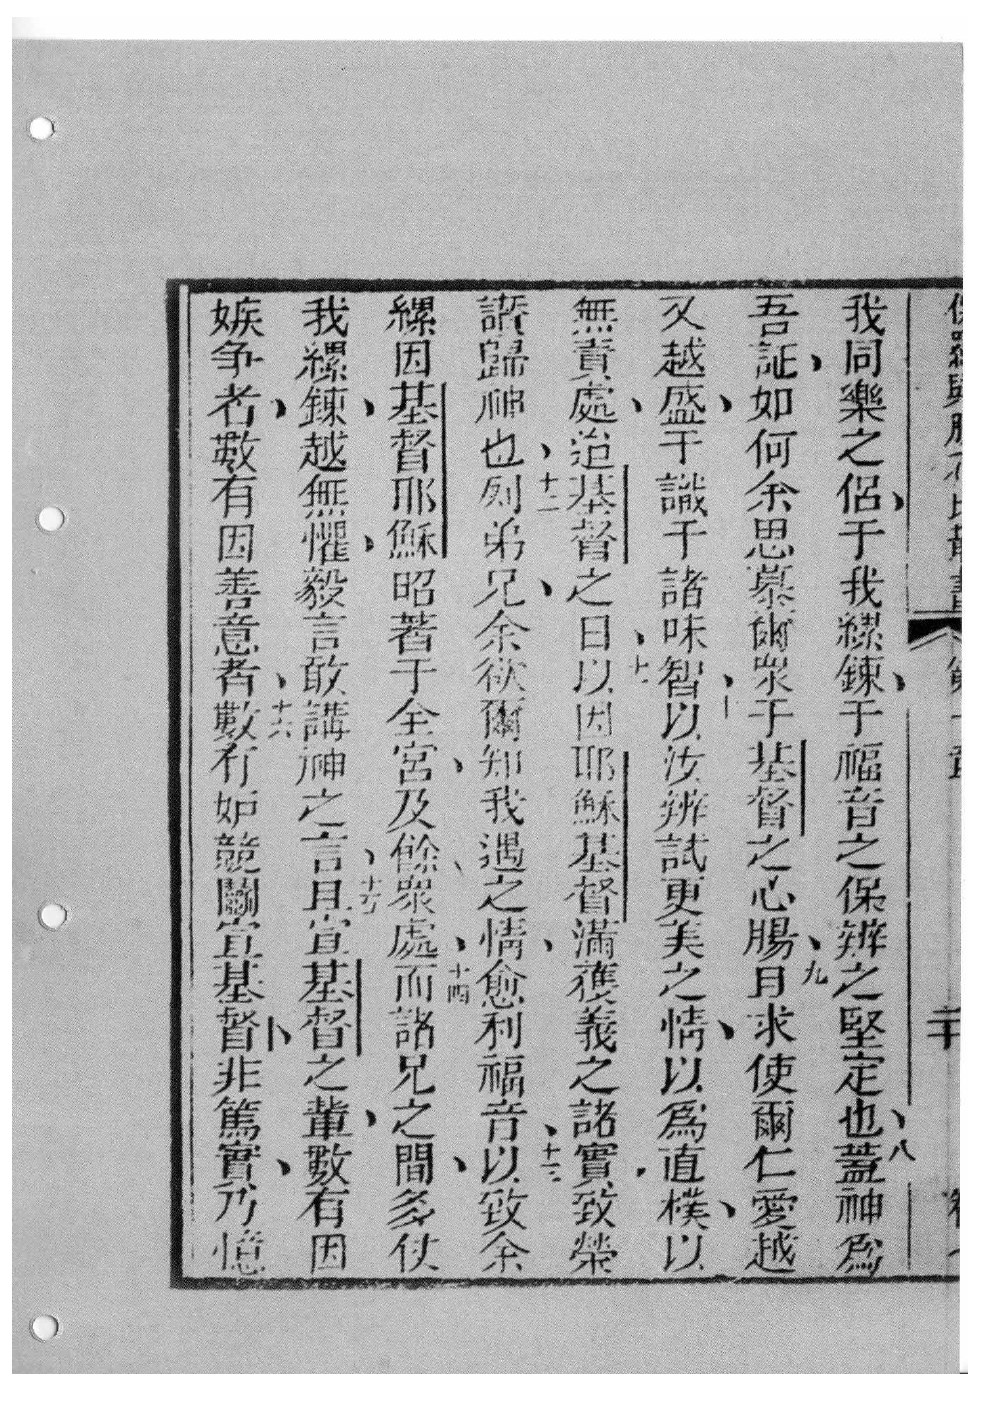 我同樂之侶于我縲鍊于福音之保辨之堅定也八蓋神爲
吾証如何余思慕爾衆于基督之心腸九且求使爾仁愛越
久越盛于識于諸味智十以汝辨試更美之情以爲直樸以
無責處迨基督之日十一以因耶穌基督滿獲義之諸實致榮
讚歸神也十二列弟兄余欲爾知我遇之情愈利福音十三以致余
縲因基督耶穌昭著于全宮及餘衆處十四而諸兄之間多仗
我縲鍊越無懼毅言敢講神之言十五且宣基督之輩數有因
嫉争者數有因善意者十六數有妒競鬬宣基督非篤實乃憶